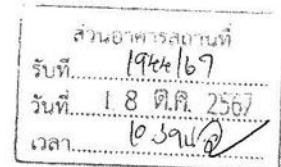 ส่วนอาคารสถานที่
รับที่ 1944/67
วันที่ 18 ต.ค. 2567
เวลา